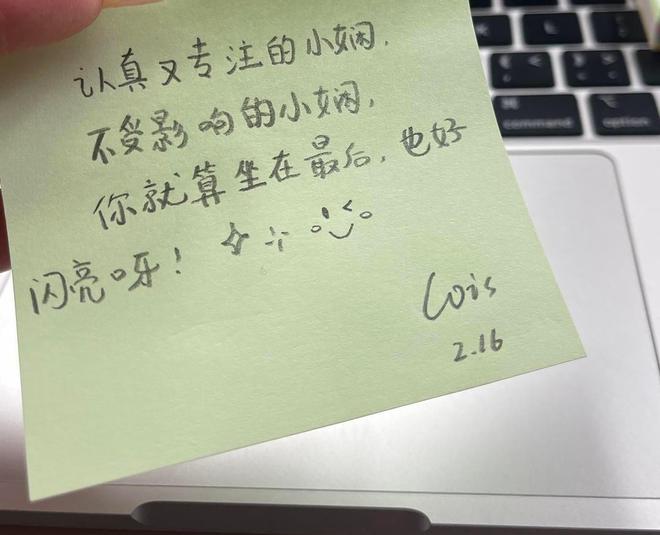 认真又专注的小娴,
不受影响的小娴,
你就算坐在最后,也好
闪亮呀!
Lois
2.16
command
option